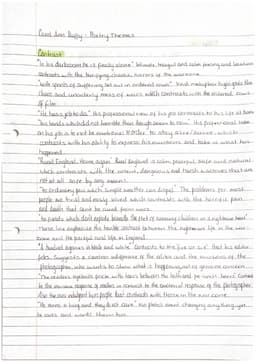 Carol Ann Duffy - Poetry Themes
Contrast
"In his darkroom he is finally alone" Intimate, tranquil and calm opening and location
contrasts with the terrifying chaotic horrors of the warzone.
"with spools of suffering set out in ordered rows" Vivid metaphor highlights the
chaos and uncertainty mess of wars which contrasts with the ordered rows
of film.
"He has a job to do" this professional view of his job contrasts to his life at home
"his hands which did not tremble then though seem to now" His professional view
on his job is to not be emotional to stay alive/ which
contrasts with his ability to express his emotions and take in what has
happened.
"Rural England. Home again" Rural England is calm, peaceful, safe and natural
which contrasts with the violent, dangerous and harsh warzones that are
not at all safe by any means.
"to ordinary pain which simple weather can dispel" The problems for most
people are trivial and easily solved which contrasts with the horrific pain
and death that can't be cured
"to fields which don't explode beneath the feet of running children in a nightmare heat"
These line emphasise the horrible contrast between the nightmare life in the war
zone and the peaceful rural life in England.
"A hundred agonies in black and white" contrasts to the "five or six" that his editor
picks. Suggests a careless indulgence of the editor and the emotions of the
photographer, who wants to show what is happening out of genuine concern.
"The readers eyeballs prick with tears between the bath and pre-lunch beers"
to the careless response of readers in contrast to the emotional response of the photographer.
people contrast with those in the war zone.
"He earns a living and they do not care" his photos don't change anything yet
he cares and works them